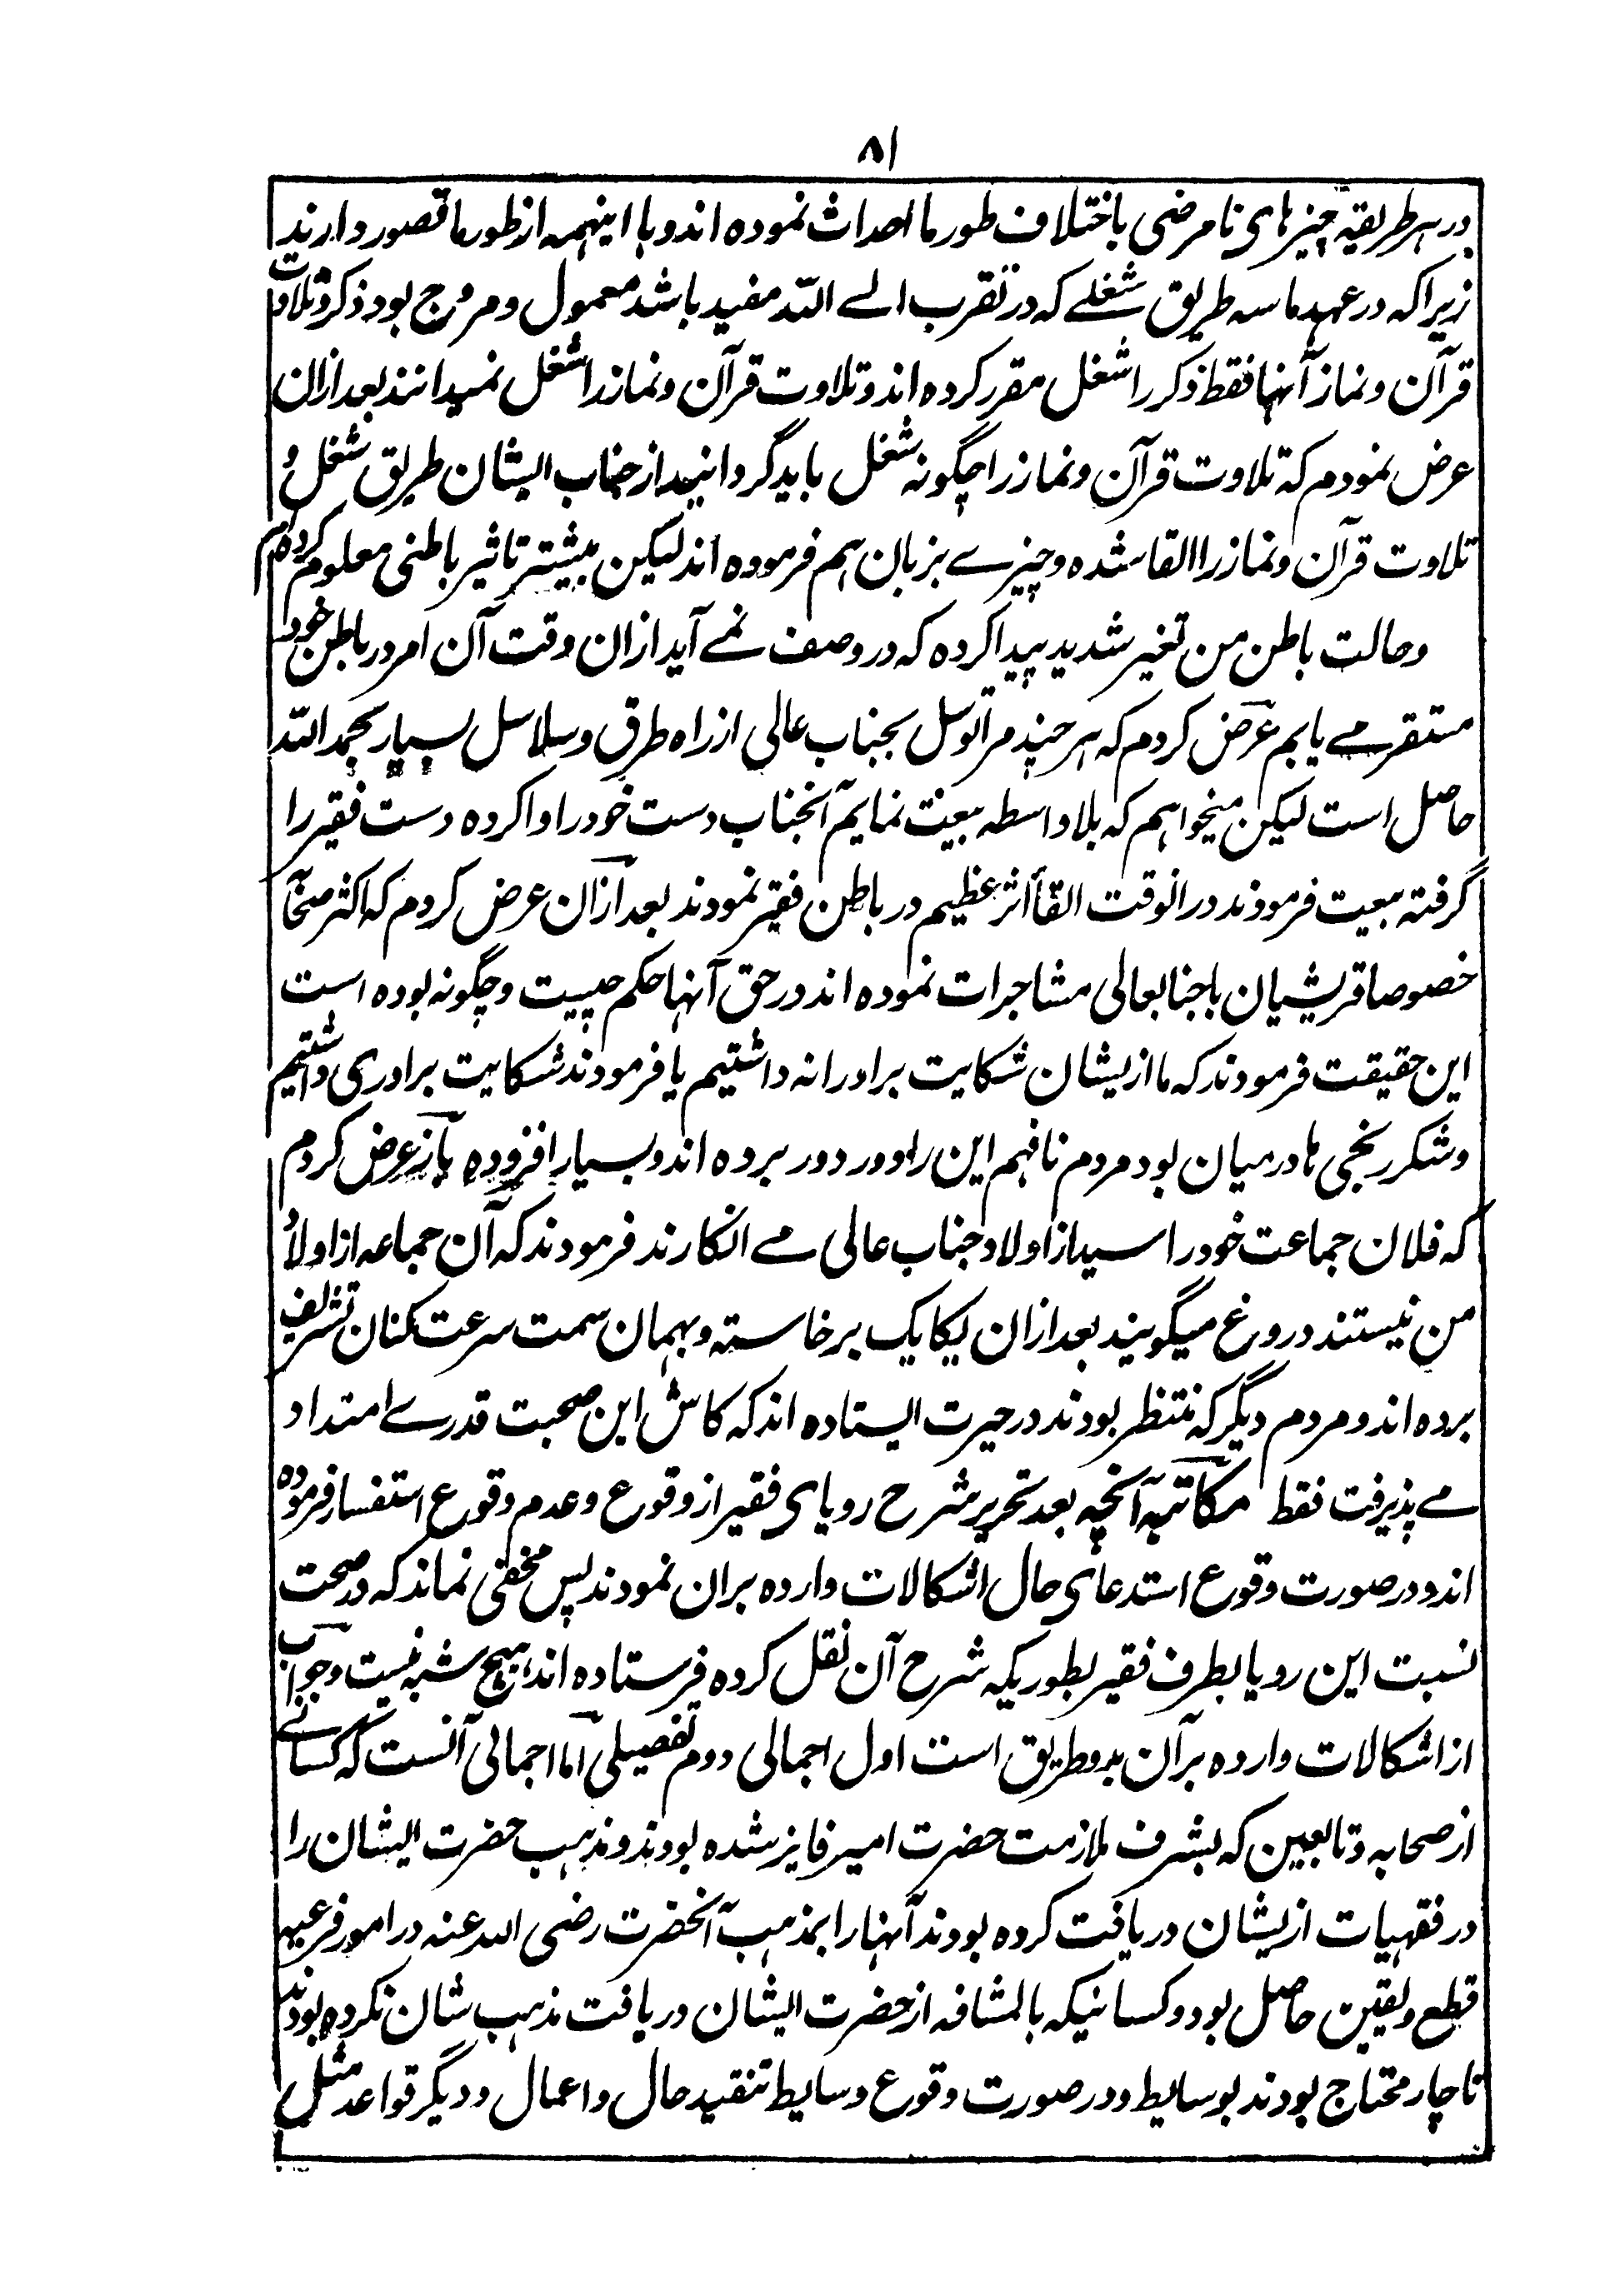 ۸۱
در ہر طریقہ چیزہای نامرضی باختلاف طور ما احداث نمودہ اند و با اینہمہ از طور ما قصور دارند
زیرا کہ در عہد ما سہ طریق شغلے کہ در تقرب الے اللہ مفید باشد معمول و مروج بود ذکر و تلاوت
قرآن و نماز آنہا فقط ذکر را شغل مقرر کردہ اند و تلاوت قرآن و نماز را شغل نمیدانند بعد ازان
عرض نمودم کہ تلاوت قرآن و نماز را چگونہ شغل باید گردانید از جناب ایشان طریق شغل و
تلاوت قرآن و نماز را القا شدہ و چیزے بزبان ہم فرمودہ اند لیکن بیشتر تاثیر باطنی معلوم کردہ ام
و حالت باطن من تغیر شدید پیدا کردہ کہ در وصف نمے آید ازان وقت آن امر در باطن خود
مستقر مے یابم عرض کردم کہ ہر چند مرا توسل بجناب عالی از راہ طرق و سلاسل بسیار بحمد اللہ
حاصل است لیکن میخواہم کہ بلاواسطہ بیعت نمایم آنجناب دست خود را وا کردہ دست فقیر را
گرفتہ بیعت فرمودند در انوقت القأ اثر عظیم در باطن فقیر نمودند بعد ازان عرض کردم کہ اکثر صحابہ
خصوصا قریشیان با جنابعالی مشاجرات نمودہ اند در حق آنہا حکم چیست و چگونہ بودہ است
این حقیقت فرمودند کہ ما از یشان شکایت برادرانہ داشتیم یا فرمودند شکایت برادری داشتیم
و شکررنجی ہا درمیان بود مردم نافہم این را دور دور بردہ اند و بسیار افزودہ باز عرض کردم
کہ فلان جماعت خود را سید از اولاد جناب عالی مے انگارند فرمودند کہ آن جماعہ از اولاد
من نیستند دروغ میگویند بعد ازان یکایک برخاستہ و بہمان سمت سرعت کنان تشریف
بردہ اند و مردم دیگر کہ منتظر بودند در حیرت ایستادہ اند کہ کاش این صحبت قدرے امتداد
مے پذیرفت فقط مکاتبہ آنچہ بعد تحریر شرح رویای فقیر از وقوع و عدم وقوع استفسار فرمودہ
اند و در صورت وقوع استدعای حال اشکالات واردہ بران نمودند پس مخفی نماند کہ در صحت
نسبت این رویا بطرف فقیر بطوریکہ شرح آن نقل کردہ فرستادہ اند ہیچ شبہ نیست و جواب
از اشکالات واردہ برآن بدو طریق است اول اجمالی دوم تفصیلی اما اجمالی آنست کہ کسانے
از صحابہ و تابعین کہ بشرف ملازمت حضرت امیر فایز شدہ بودند و مذہب حضرت ایشان را
در فقہیات از یشان دریافت کردہ بودند آنہا را بمذہب آنحضرت رضی اللہ عنہ در امور فرعیہ
قطع و یقین حاصل بود و کسانیکہ بالمشافہ از حضرت ایشان دریافت مذہب شان نکردہ بودند
ناچار محتاج بودند بوسایط و در صورت وقوع وسایط تنقید حال و اعمال و دیگر قواعد مثل